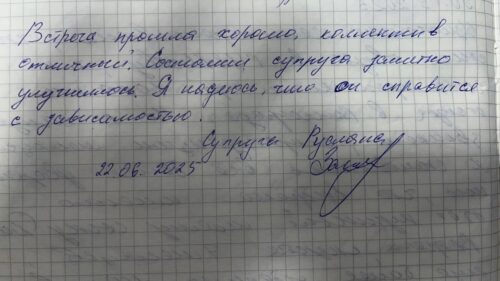 Встреча прошла хорошо, коллектив
отличный. Состояние супруга заметно
улучшилось. Я надеюсь, что он справится
с зависимостью.
Супруга Руслана
22.06.2025